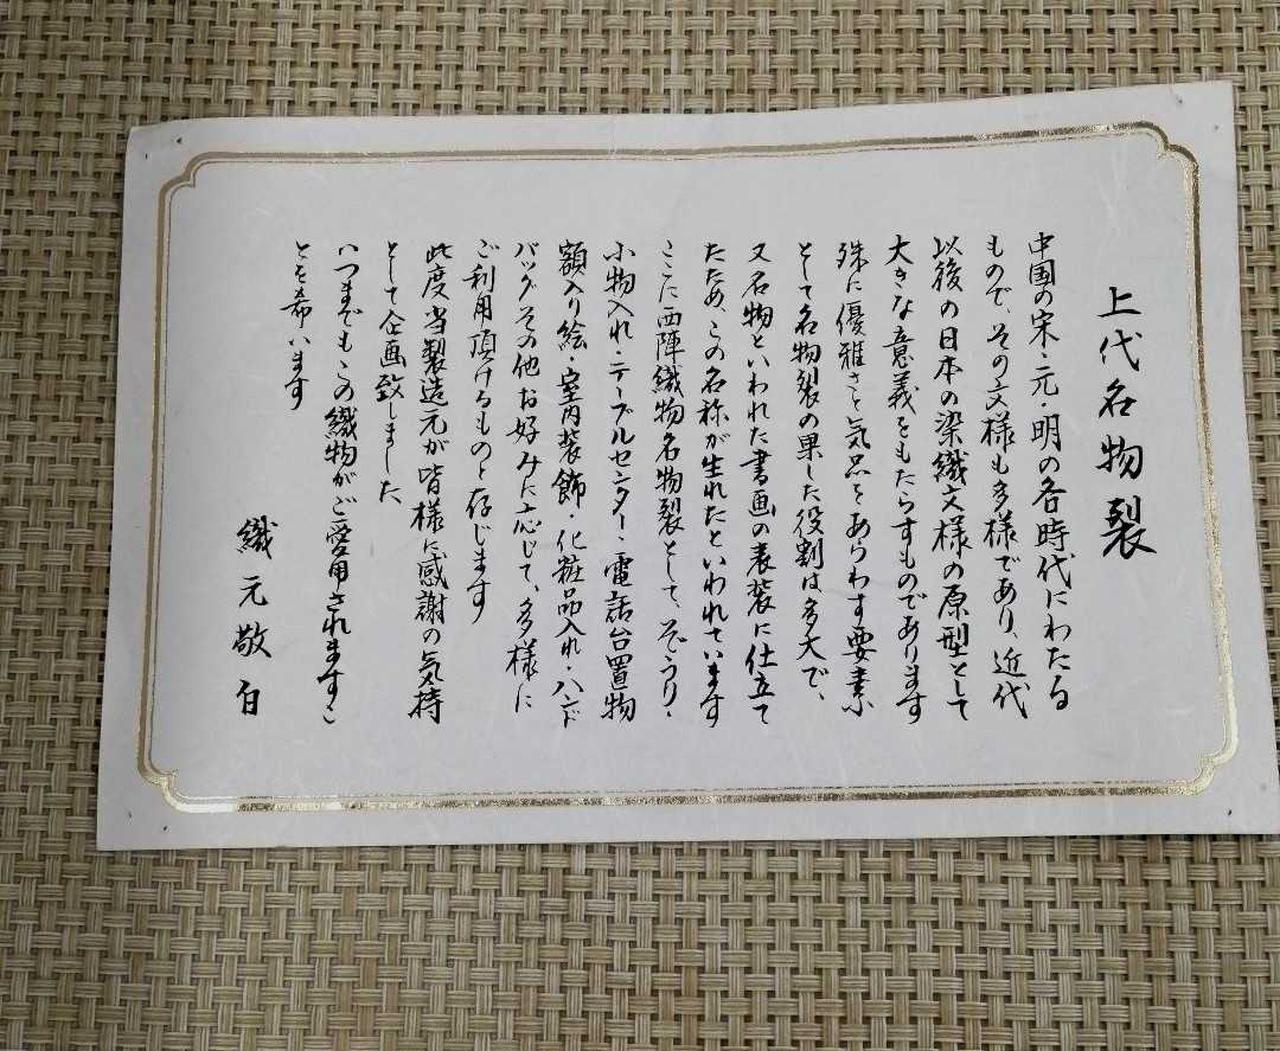 上代名物裂
中国の宋・元・明の各時代にわたる
もので、その文様も多様であり、近代
以後の日本の染織文様の原型として
大きな意義をもたらすものであります
殊に優雅さと気品をあらわす要素
として名物裂の果した役割は多大で、
又名物といわれた書画の表装に仕立て
たため、この名称が生れたといわれています
ここに西陣織物名物裂として、ぞうり・
小物入れ・テーブルセンター・電話台置物
額入り絵・室内装飾・化粧品入れ・ハンド
バッグその他お好みに応じて、多様に
ご利用頂けるものと存じます
此度当製造元が皆様に感謝の気持
として企画致しました
いつまでもこの織物がご愛用されますこ
とを希います
織元敬白